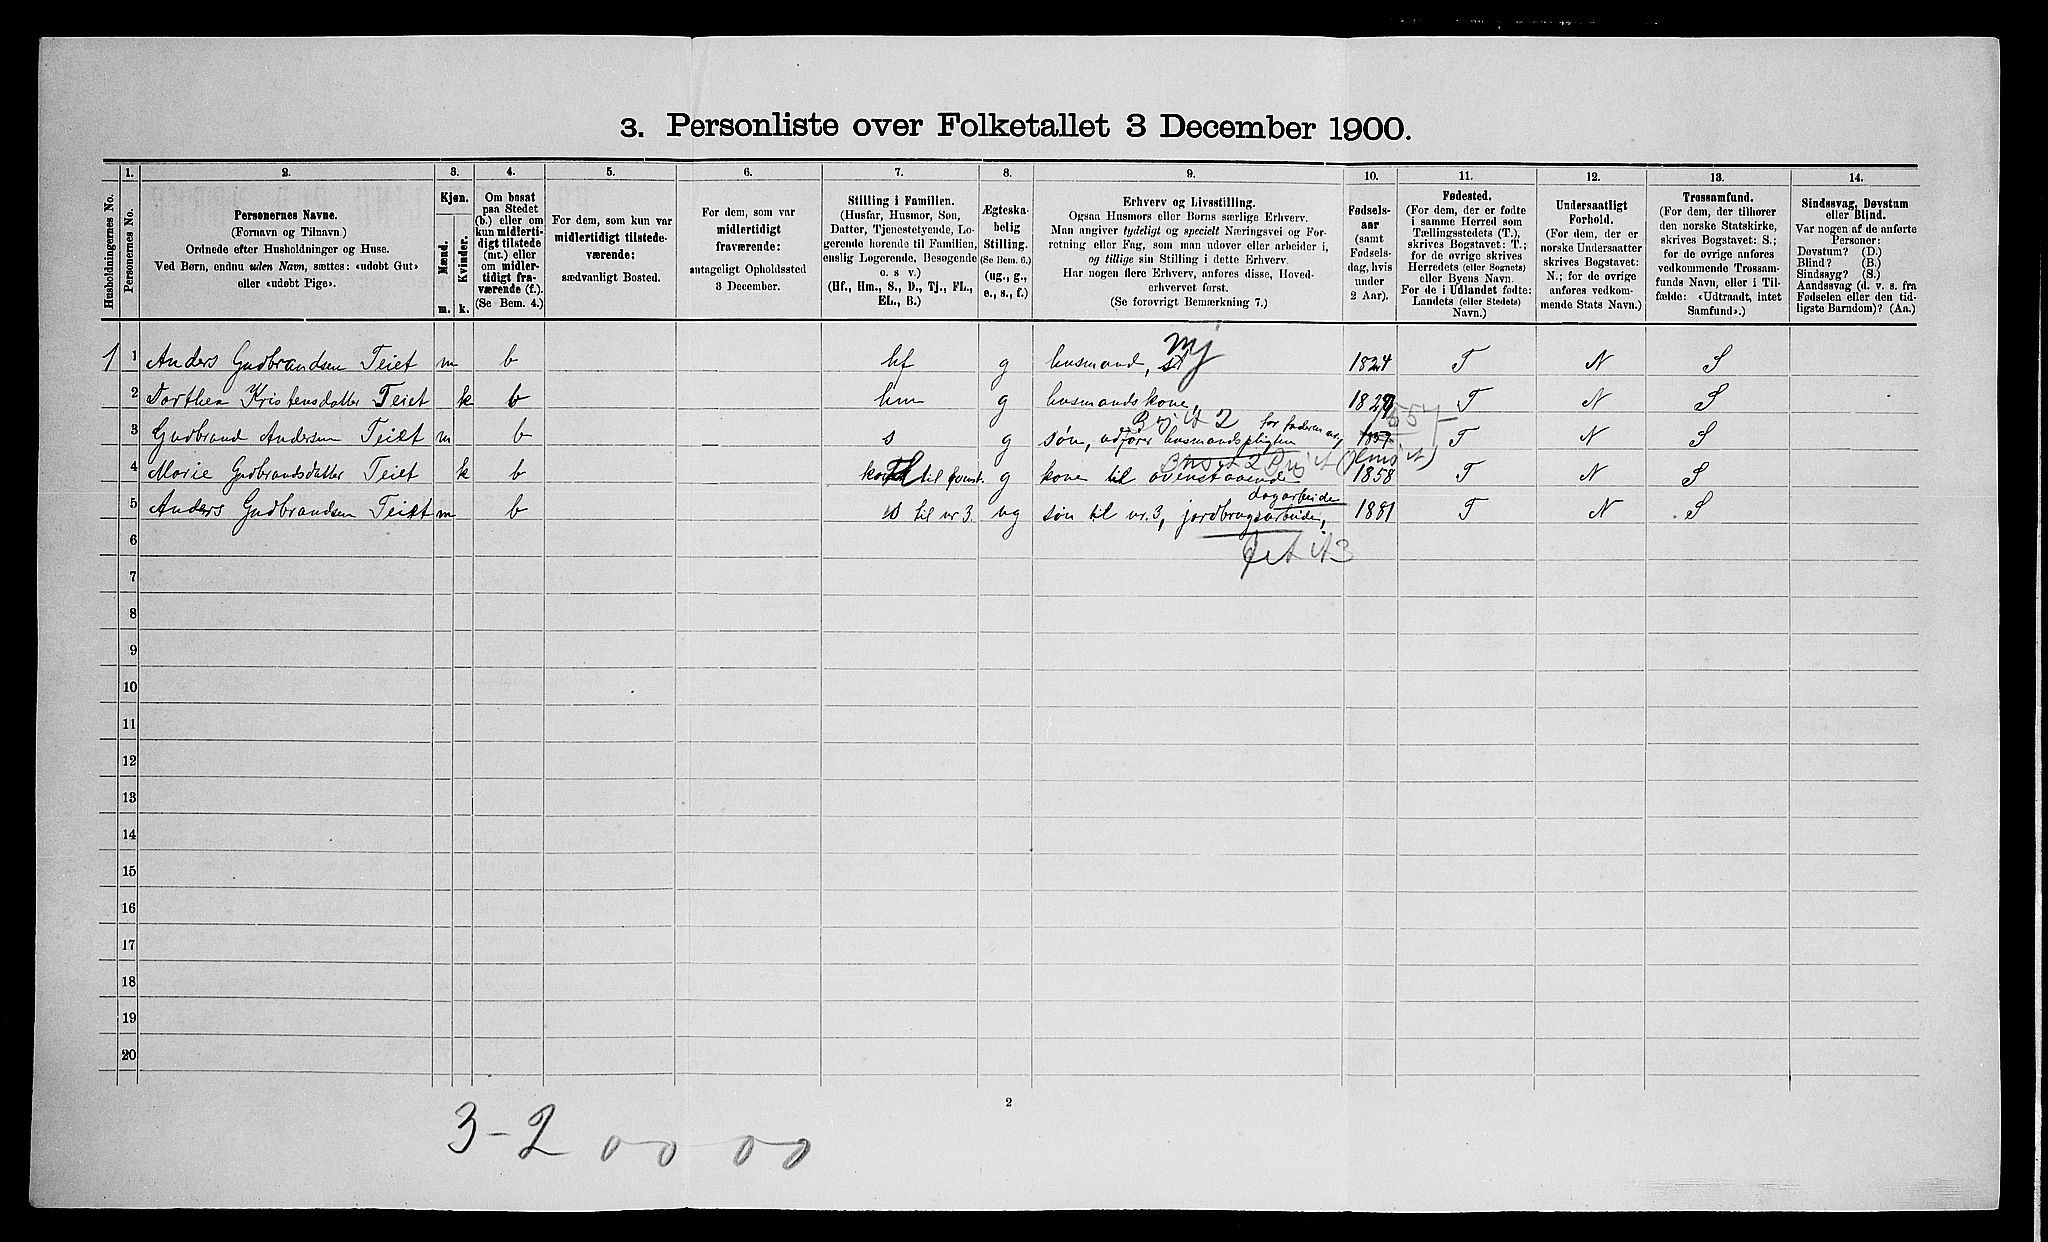 3. Personliste over Folketallet 3 December 1900.
Husholdningernes No.
1. Personernes No.
2. Personernes Navne.
(Fornavn og Tilnavn.)
Ordnede efter Husholdninger og Huse.
Ved Børn, endnu uden Navn, sættes: «udøbt Gut»
eller «udøbt Pige».
3. Kjøn.
Mænd. Kvinder.
m. k.
4. Om bosat
paa Stedet
(b.) eller om
kun midlerti-
digt tilstede
(mt.) eller
om midler-
tidigt fra-
værende (f.).
(Se Bem. 4.)
5. For dem, som kun var
midlertidigt tilstede-
værende:
sædvanligt Bosted.
6. For dem, som var
midlertidigt
fraværende:
antageligt Opholdssted
3 December.
7. Stilling i Familien.
(Husfar, Husmor, Søn,
Datter, Tjenestetyende, Lo-
gerende hørende til Familien,
enslig Logerende, Besøgende
o. s v.)
(Hf., Hm., S., D., Tj., FL.,
EL., B.)
8. Ægteska-
belig
Stilling.
(Se Bem. 6.)
(ug., g.,
e., s., f.)
9. Erhverv og Livsstilling.
Ogsaa Husmors eller Børns særlige Erhverv.
Man angiver tydeligt og specielt Næringsvei og For-
retning eller Fag, som man udøver eller arbeider i,
og tillige sin Stilling i dette Erhverv.
Har nogen flere Erhverv, anføres disse, Hoved-
erhvervet først.
(Se forøvrigt Bemærkning 7.)
10. Fødsels-
aar
(samt
Fødsels-
dag, hvis
under
2 Aar).
11. Fødested.
(For dem, der er fødte
i samme Herred som
Tællingsstedets (T.),
skrives Bogstavet: T.;
for de øvrige skrives
Herredets (eller Sognets)
eller Byens Navn.
For de i Udlandet fødte:
Landets (eller Stedets)
Navn.)
12. Undersaatligt
Forhold.
(For dem, der er
norske Undersaatter
skrives Bogstavet:
N.; for de øvrige
anføres vedkom-
mende Stats Navn.)
13. Trossamfund.
(For dem, der tilhører
den norske Statskirke,
skrives Bogstavet: S.;
for de øvrige anføres
vedkommende Trossam-
funds Navn, eller i Til-
fælde: «Udtraadt, intet
Samfund».)
14. Sindssvag, Døvstum
eller Blind.
Var nogen af de anførte
Personer:
Døvstum? (D.)
Blind? (B.)
Sindssyg? (S.)
Aandssvag (d. v. s. fra
Fødselen eller den tid-
ligste Barndom)? (Aa.)
1 1 Anders Gudbrandsen Teiet m b hf g husmand, mj 1824 T N S
2 Dorthea Kristensdatter Teiet k b hm g husmandskone, T N S
3 Gudbrand Andersen Teiet m b s g søn, udfører husmandspligten for faderen 1857 T N S
4 Marie Gudbrandsdatter Teiet k b til g kone til ovenstaaende 1858 T N S
5 Anders Gudbrandsen Teiet m b s til nr 3. ug søn til nr. 3, jordbrugsarbeide, dagarbeide 1881 T N S
6
7
8
9
10
11
12
13
14
15
16
17
18
19
20
2
3-2 00 00